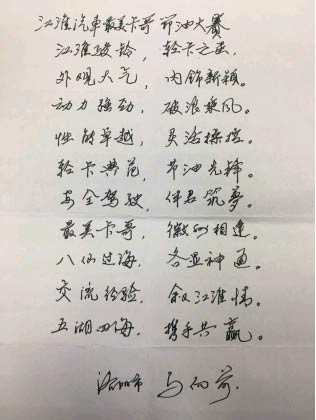 江淮汽车最美卡哥 节油大赛
江淮骏铃，轻卡之王。
外观大气，内饰新颖。
动力强劲，破浪乘风。
性能卓越，灵活操控。
轻卡典范，节油先锋。
安全驾驶，伴君筑夢。
最美卡哥，徽州相逢。
八仙过海，各显神通。
交流经验，叙江淮情。
五湖四海，携手共赢。
洛阳市 马